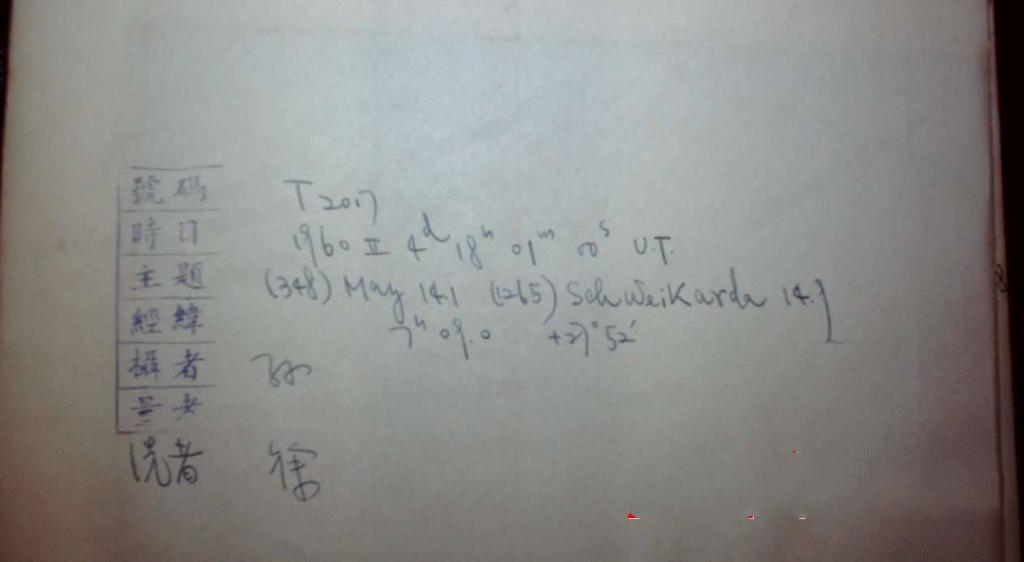 號碼 T 2017
時日 1960 II 4d 18h 01m 00s U.T.
主題 (348) May 14.1 (1265) Schweikarda 14.1
經緯 7h 09.0 +27°52'
攝者 孫
參考
洗者 徐